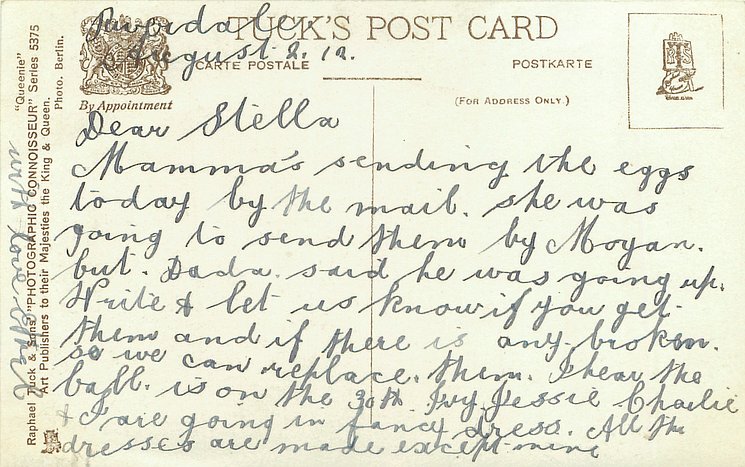 TUCK'S POST CARD
August 2. 12.
CARTE POSTALE
POSTKARTE
By Appointment
(FOR ADDRESS ONLY.)
TS
Dear Stella
Mamma's sending the eggs
today by the mail. she was
going to send them by Moyan.
but. Dada. said he was going up.
Write & let us know if you get
them and if there is any broken.
so we can replace. them. I hear the
ball. is on the 30th. Ivy Jessie Charlie
& I are going in fancy dress. All the
dresses are made except mine
with love
"Queenie"
Raphael Tuck & Sons' "PHOTOGRAPHIC CONNOISSEUR" Series 5375
Art Publishers to their Majesties the King & Queen.
Photo. Berlin.